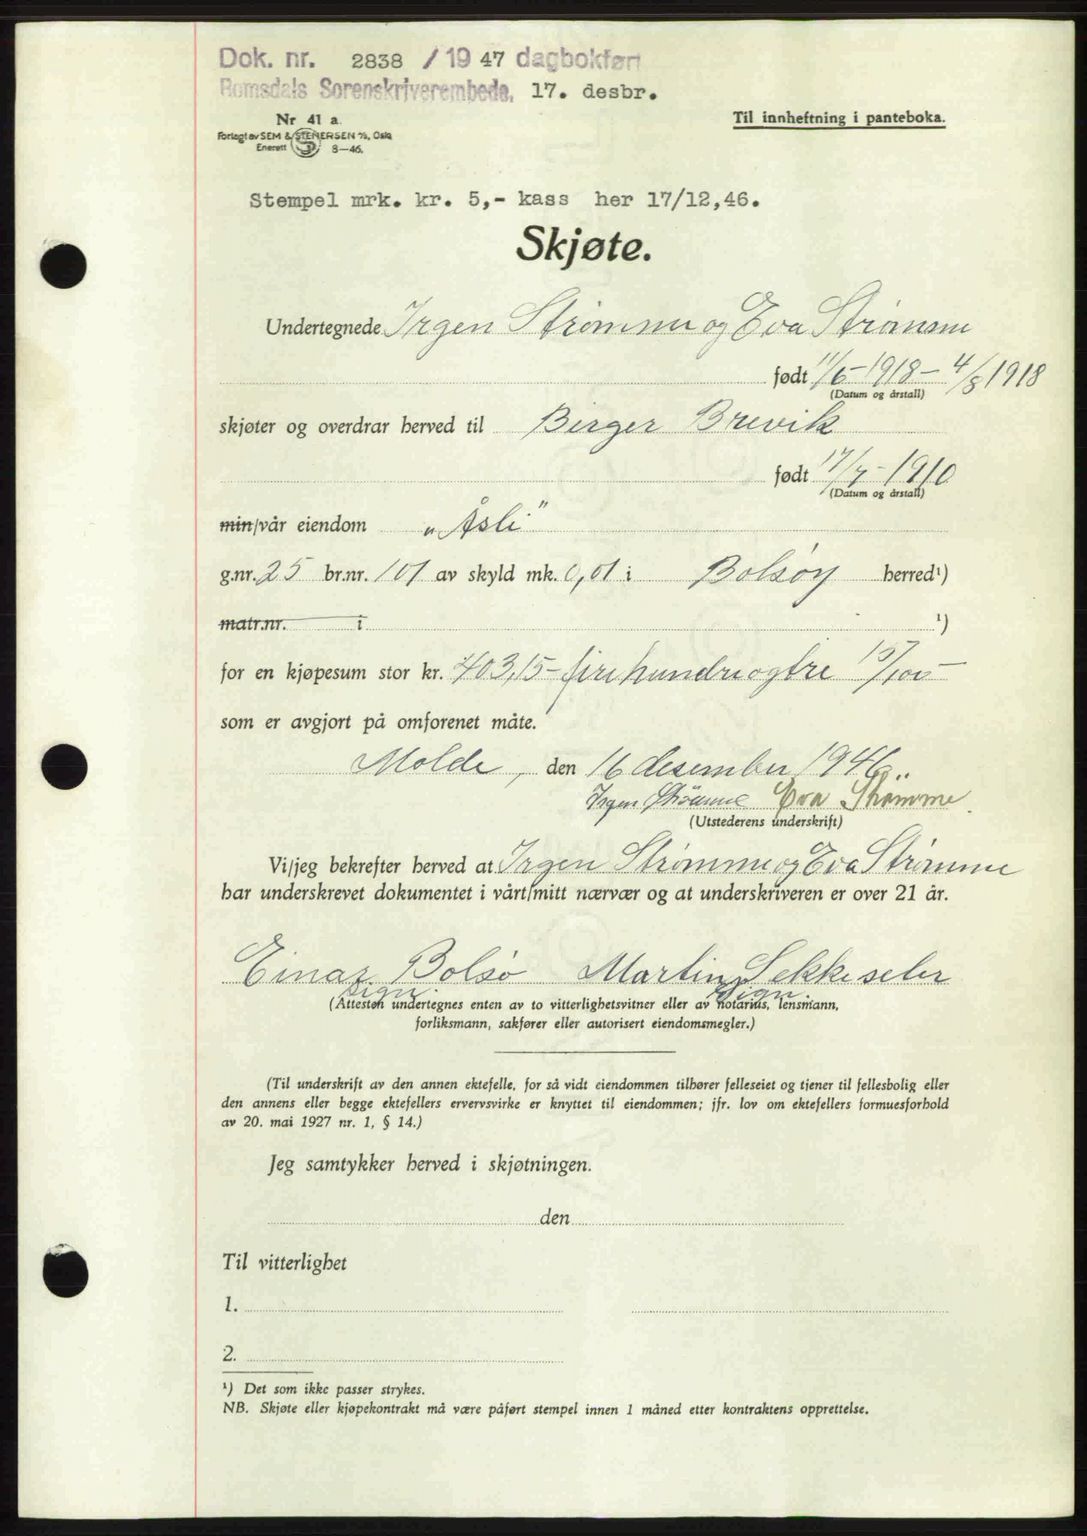 Dok. nr. 2838 / 19 47 dagbokført
Romsdals Sorenskriverembede, 17. desbr.
Nr 41 a
Til innheftning i panteboka.
Forlagt av SEM & STENERSEN A/S, Oslo
Enerett 8—46.
Stempel mrk. kr. 5,- kass her 17/12,46.
Skjøte.
Undertegnede Irgen Strømme og Eva Strømme
født 11/6-1918 - 4/8 1918
(Datum og årstall)
skjøter og overdrar herved til Birger Brevik
født 17/7-1910
(Datum og årstall)
min/vår eiendom „Åsli"
g.nr. 25 br.nr. 101 av skyld mk. 0,01 i Bolsøy herred¹)
matr.nr. i ¹)
for en kjøpesum stor kr. 403,15 - fire hundre og tre 15/100 -
som er avgjort på omforenet måte.
Molde, den 16 desember 1946..
Irgen Strømme Eva Strømme.
(Utstederens underskrift)
Vi/jeg bekrefter herved at Irgen Strømme og Eva Strømme
har underskrevet dokumentet i vårt/mitt nærvær og at underskriveren er over 21 år.
Einar Bolsø Martin Sekkeseter
sign. sign.
(Attesten undertegnes enten av to vitterlighetsvitner eller av notarius, lensmann,
forliksmann, sakfører eller autorisert eiendomsmegler.)
(Til underskrift av den annen ektefelle, for så vidt eiendommen tilhører felleseiet og tjener til fellesbolig eller
den annens eller begge ektefellers ervervsvirke er knyttet til eiendommen; jfr. lov om ektefellers formuesforhold
av 20. mai 1927 nr. 1, § 14.)
Jeg samtykker herved i skjøtningen.
den
Til vitterlighet
1.
2.
¹) Det som ikke passer strykes.
NB. Skjøte eller kjøpekontrakt må være påført stempel innen 1 måned etter kontraktens opprettelse.